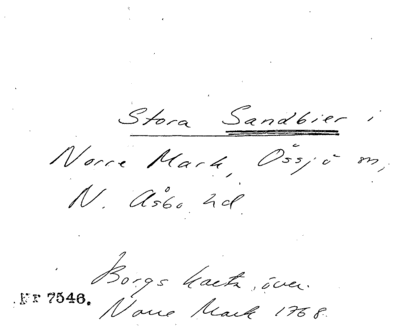 Stora Sandbier i
Norre Mark, Össjö sn,
N. Åsbo hd.
Borgs karta över
Nr 7546.
Norre Mark 1768.